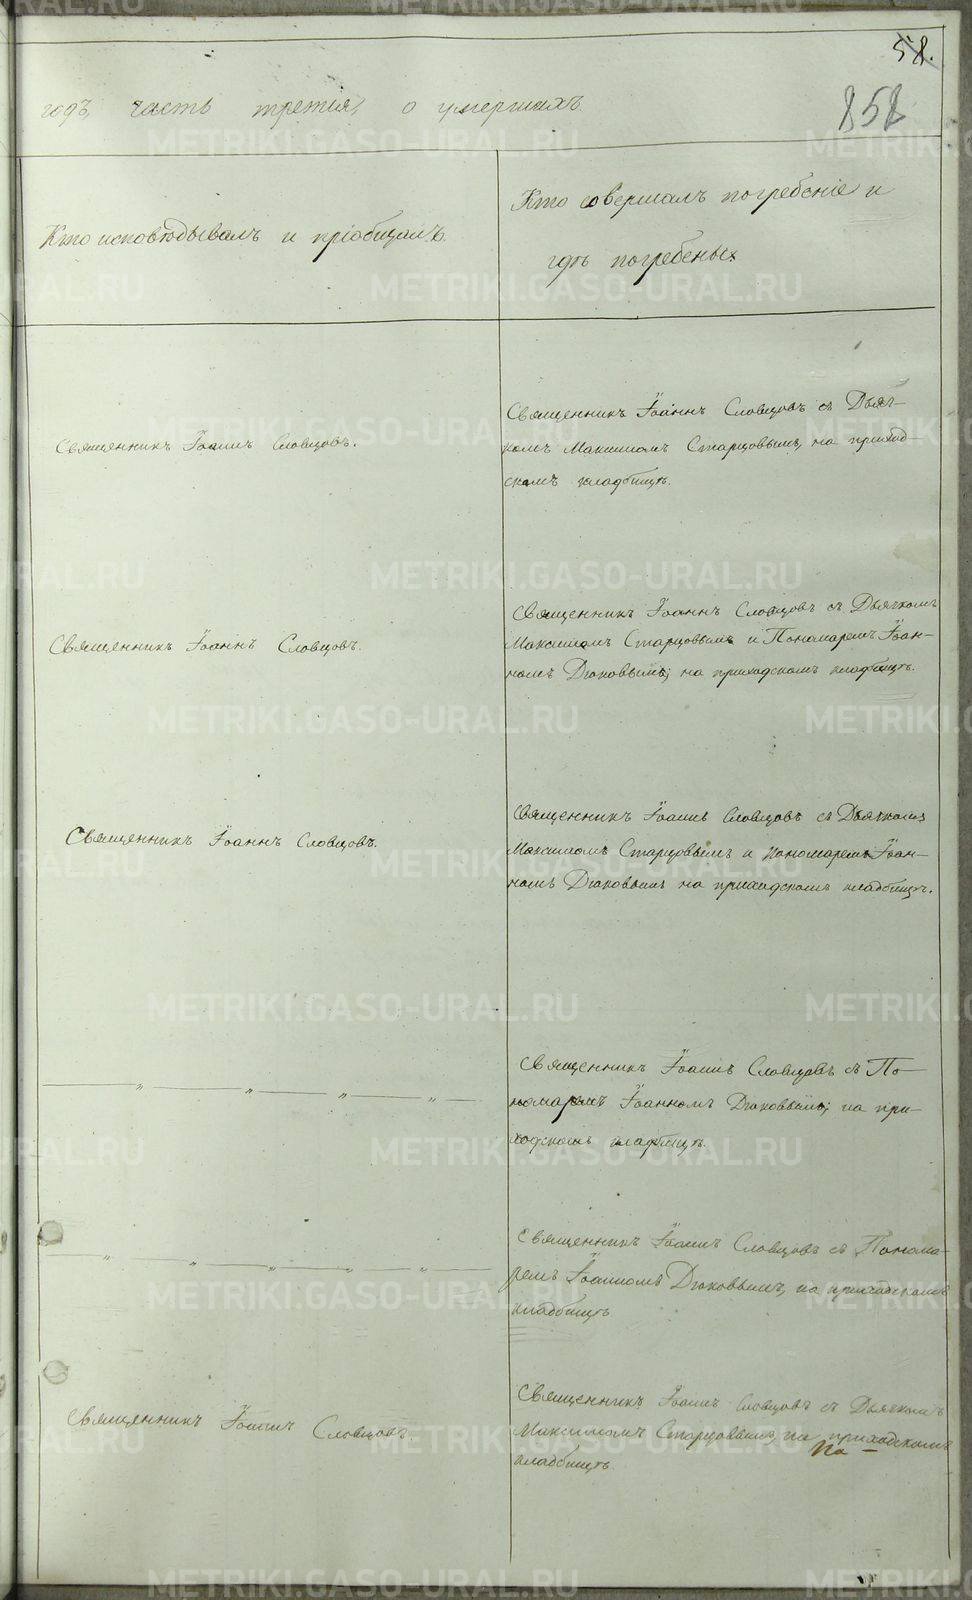 58.
858
годъ, часть третія, о умершихъ
Кто исповѣдывалъ и пріобщалъ.
Кто совершалъ погребеніе и
гдѣ погребены.
Священникъ Іоаннъ Словцовъ.
Священникъ Іоаннъ Словцовъ съ Дьяч-
комъ Максимомъ Старцовымъ, на приход-
скомъ кладбищѣ.
Священникъ Іоаннъ Словцовъ.
Священникъ Іоаннъ Словцовъ съ Дьячкомъ
Максимомъ Старцовымъ и Пономаремъ Іоан-
номъ Дюковымъ; на приходскомъ кладбищѣ.
Священникъ Іоаннъ Словцовъ.
Священникъ Іоаннъ Словцовъ съ Дьячкомъ
Максимомъ Старцовымъ и пономаремъ Іоан-
номъ Дюковымъ на приходскомъ кладбищѣ.
— „ — „ — „ — „ —
Священникъ Іоаннъ Словцовъ съ По-
номаремъ Іоанномъ Дюковымъ; на при-
ходскомъ кладбищѣ.
— „ — „ — „ — „ — „ —
Священникъ Іоаннъ Словцовъ съ Понома-
ремъ Іоанномъ Дюковымъ, на приходскомъ
кладбищѣ
Священникъ Іоаннъ Словцовъ.
Священникъ Іоаннъ Словцовъ съ Дьячкомъ
Максимомъ Старцовымъ, на приходскомъ
На —
кладбищѣ.
METRIKI.GASO-URAL.RU